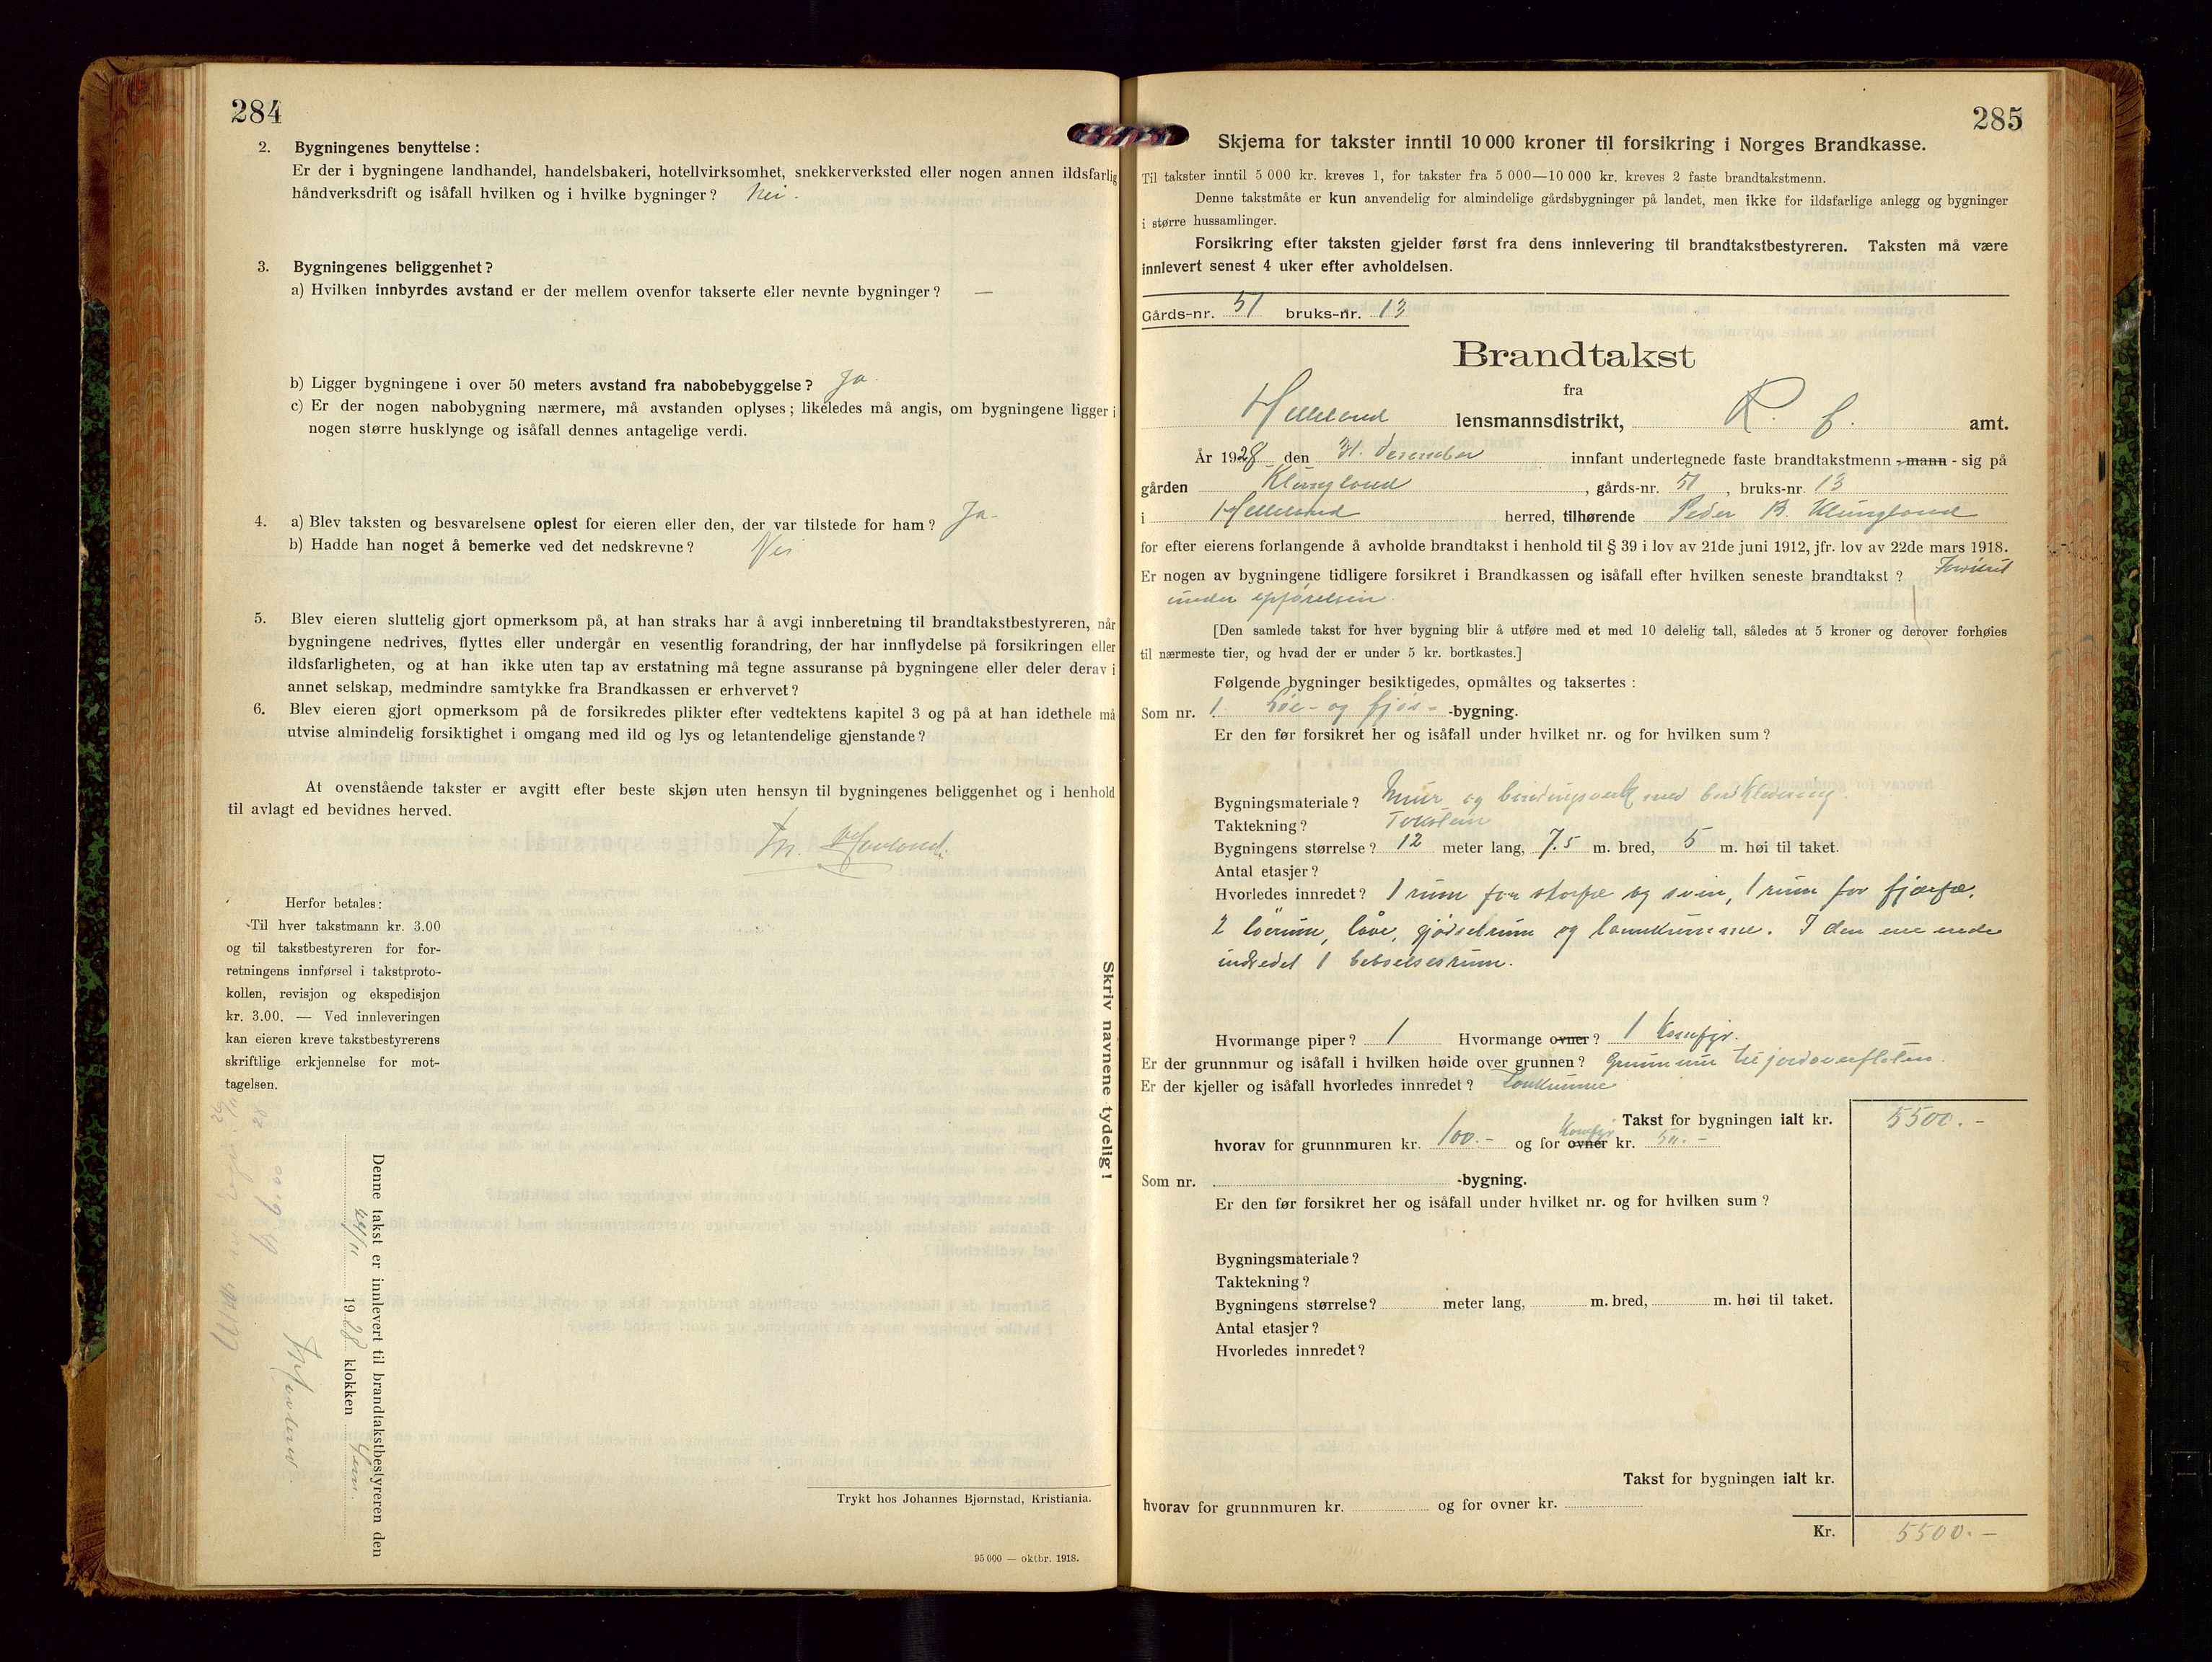 284
2. Bygningenes benyttelse :
Er der i bygningene landhandel, handelsbakeri, hotellvirksomhet, snekkerverksted eller nogen annen ildsfarlig
håndverksdrift og isåfall hvilken og i hvilke bygninger? Nei.
3. Bygningenes beliggenhet?
a) Hvilken innbyrdes avstand er der mellem ovenfor takserte eller nevnte bygninger? —
b) Ligger bygningene i over 50 meters avstand fra nabobebyggelse? Ja.
c) Er der nogen nabobygning nærmere, må avstanden oplyses; likeledes må angis, om bygningene ligger i
nogen større husklynge og isåfall dennes antagelige verdi.
4. a) Blev taksten og besvarelsene oplest for eieren eller den, der var tilstede for ham? Ja-
b) Hadde han noget å bemerke ved det nedskrevne? Nei
5. Blev eieren sluttelig gjort opmerksom på, at han straks har å avgi innberetning til brandtakstbestyreren, når
bygningene nedrives, flyttes eller undergår en vesentlig forandring, der har innflydelse på forsikringen eller
ildsfarligheten, og at han ikke uten tap av erstatning må tegne assuranse på bygningene eller deler derav i
annet selskap, medmindre samtykke fra Brandkassen er erhvervet?
6. Blev eieren gjort opmerksom på de forsikredes plikter efter vedtektens kapitel 3 og på at han idethele må
utvise almindelig forsiktighet i omgang med ild og lys og letantendelige gjenstande?
At ovenstående takster er avgitt efter beste skjøn uten hensyn til bygningenes beliggenhet og i henhold
til avlagt ed bevidnes herved.
Herfor betales:
Til hver takstmann kr. 3.00
og til takstbestyreren for for-
retningens innførsel i takstproto-
kollen, revisjon og ekspedisjon
kr. 3.00. — Ved innleveringen
kan eieren kreve takstbestyrerens
skriftlige erkjennelse for mot-
tagelsen.
Denne takst er innlevert til brandtakstbestyreren den
1928 klokken
Skriv navnene tydelig!
Trykt hos Johannes Bjørnstad, Kristiania.
95 000 — oktbr. 1918.
285
Skjema for takster inntil 10 000 kroner til forsikring i Norges Brandkasse.
Til takster inntil 5 000 kr. kreves 1, for takster fra 5 000—10 000 kr. kreves 2 faste brandtakstmenn.
Denne takstmåte er kun anvendelig for almindelige gårdsbygninger på landet, men ikke for ildsfarlige anlegg og bygninger
i større hussamlinger.
Forsikring efter taksten gjelder først fra dens innlevering til brandtakstbestyreren. Taksten må være
innlevert senest 4 uker efter avholdelsen.
Gårds-nr. 51 bruks-nr. 13
Brandtakst
fra
Helleland lensmannsdistrikt, R. f. amt.
År 1928 den 31. desember innfant undertegnede faste brandtakstmenn - mann - sig på
gården Klungland, gårds-nr. 51, bruks-nr. 13
i Helleland herred, tilhørende Peder B. Klungland
for efter eierens forlangende å avholde brandtakst i henhold til § 39 i lov av 21de juni 1912, jfr. lov av 22de mars 1918.
Er nogen av bygningene tidligere forsikret i Brandkassen og isåfall efter hvilken seneste brandtakst?
under opførelsen.
[Den samlede takst for hver bygning blir å utføre med et med 10 delelig tall, således at 5 kroner og derover forhøies
til nærmeste tier, og hvad der er under 5 kr. bortkastes.]
Følgende bygninger besiktigedes, opmåltes og taksertes :
Som nr. 1. Løe- og fjøs- -bygning.
Er den før forsikret her og isåfall under hvilket nr. og for hvilken sum?
Bygningsmateriale? Mur og bindingsverk med bordkledning
Taktekning? Taksten
Bygningens størrelse? 12 meter lang, 7.5 m. bred, 5 m. høi til taket.
Antal etasjer?
Hvorledes innredet? 1 rum for storfæ og svin, 1 rum for fjærfæ,
2 løerum, låve, gjødselrum og lannkumme. I den ene ende
indredet 1 beboelsesrum.
Hvormange piper? 1 Hvormange ovner? 1 Komfyr.
Er der grunnmur og isåfall i hvilken høide over grunnen? Grunnmur til jordoverflaten.
Er der kjeller og isåfall hvorledes innredet? Lankumme
Takst for bygningen ialt kr. 5500.-
hvorav for grunnmuren kr. 100.- og for ovner Komfyr kr. 50.-
Som nr. -bygning.
Er den før forsikret her og isåfall under hvilket nr. og for hvilken sum?
Bygningsmateriale?
Taktekning?
Bygningens størrelse? meter lang, m. bred, m. høi til taket.
Antal etasjer?
Hvorledes innredet?
Takst for bygningen ialt kr.
hvorav for grunnmuren kr. og for ovner kr.
Kr. 5500.-